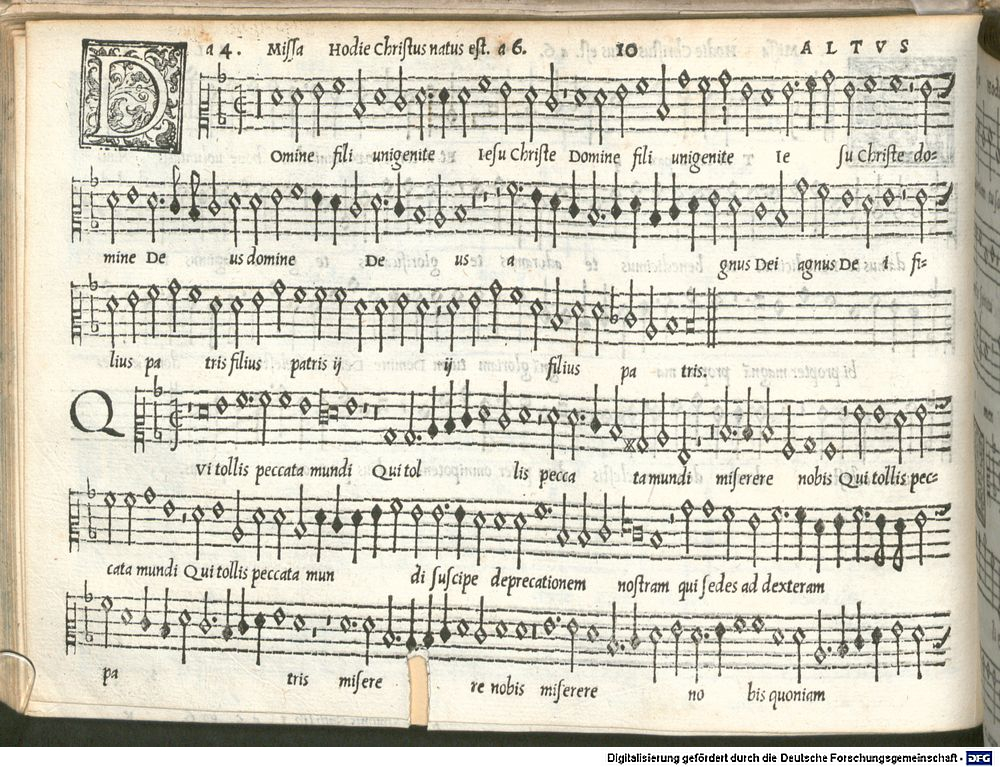 a 4. Missa Hodie Christus natus est. a 6. 10 ALTVS
D Omine fili unigenite Iesu Christe Domine fili unigenite Ie su Christe do-
mine De us domine De us a gnus Dei agnus De i fi-
lius pa tris filius patris ij ij filius pa tris.
Q vi tollis peccata mundi Qui tol lis pecca ta mundi miserere nobis Qui tollis pec-
cata mundi Qui tollis peccata mun di suscipe deprecationem nostram qui sedes ad dexteram
pa tris misere re nobis miserere no bis quoniam
Digitalisierung gefördert durch die Deutsche Forschungsgemeinschaft - DFG